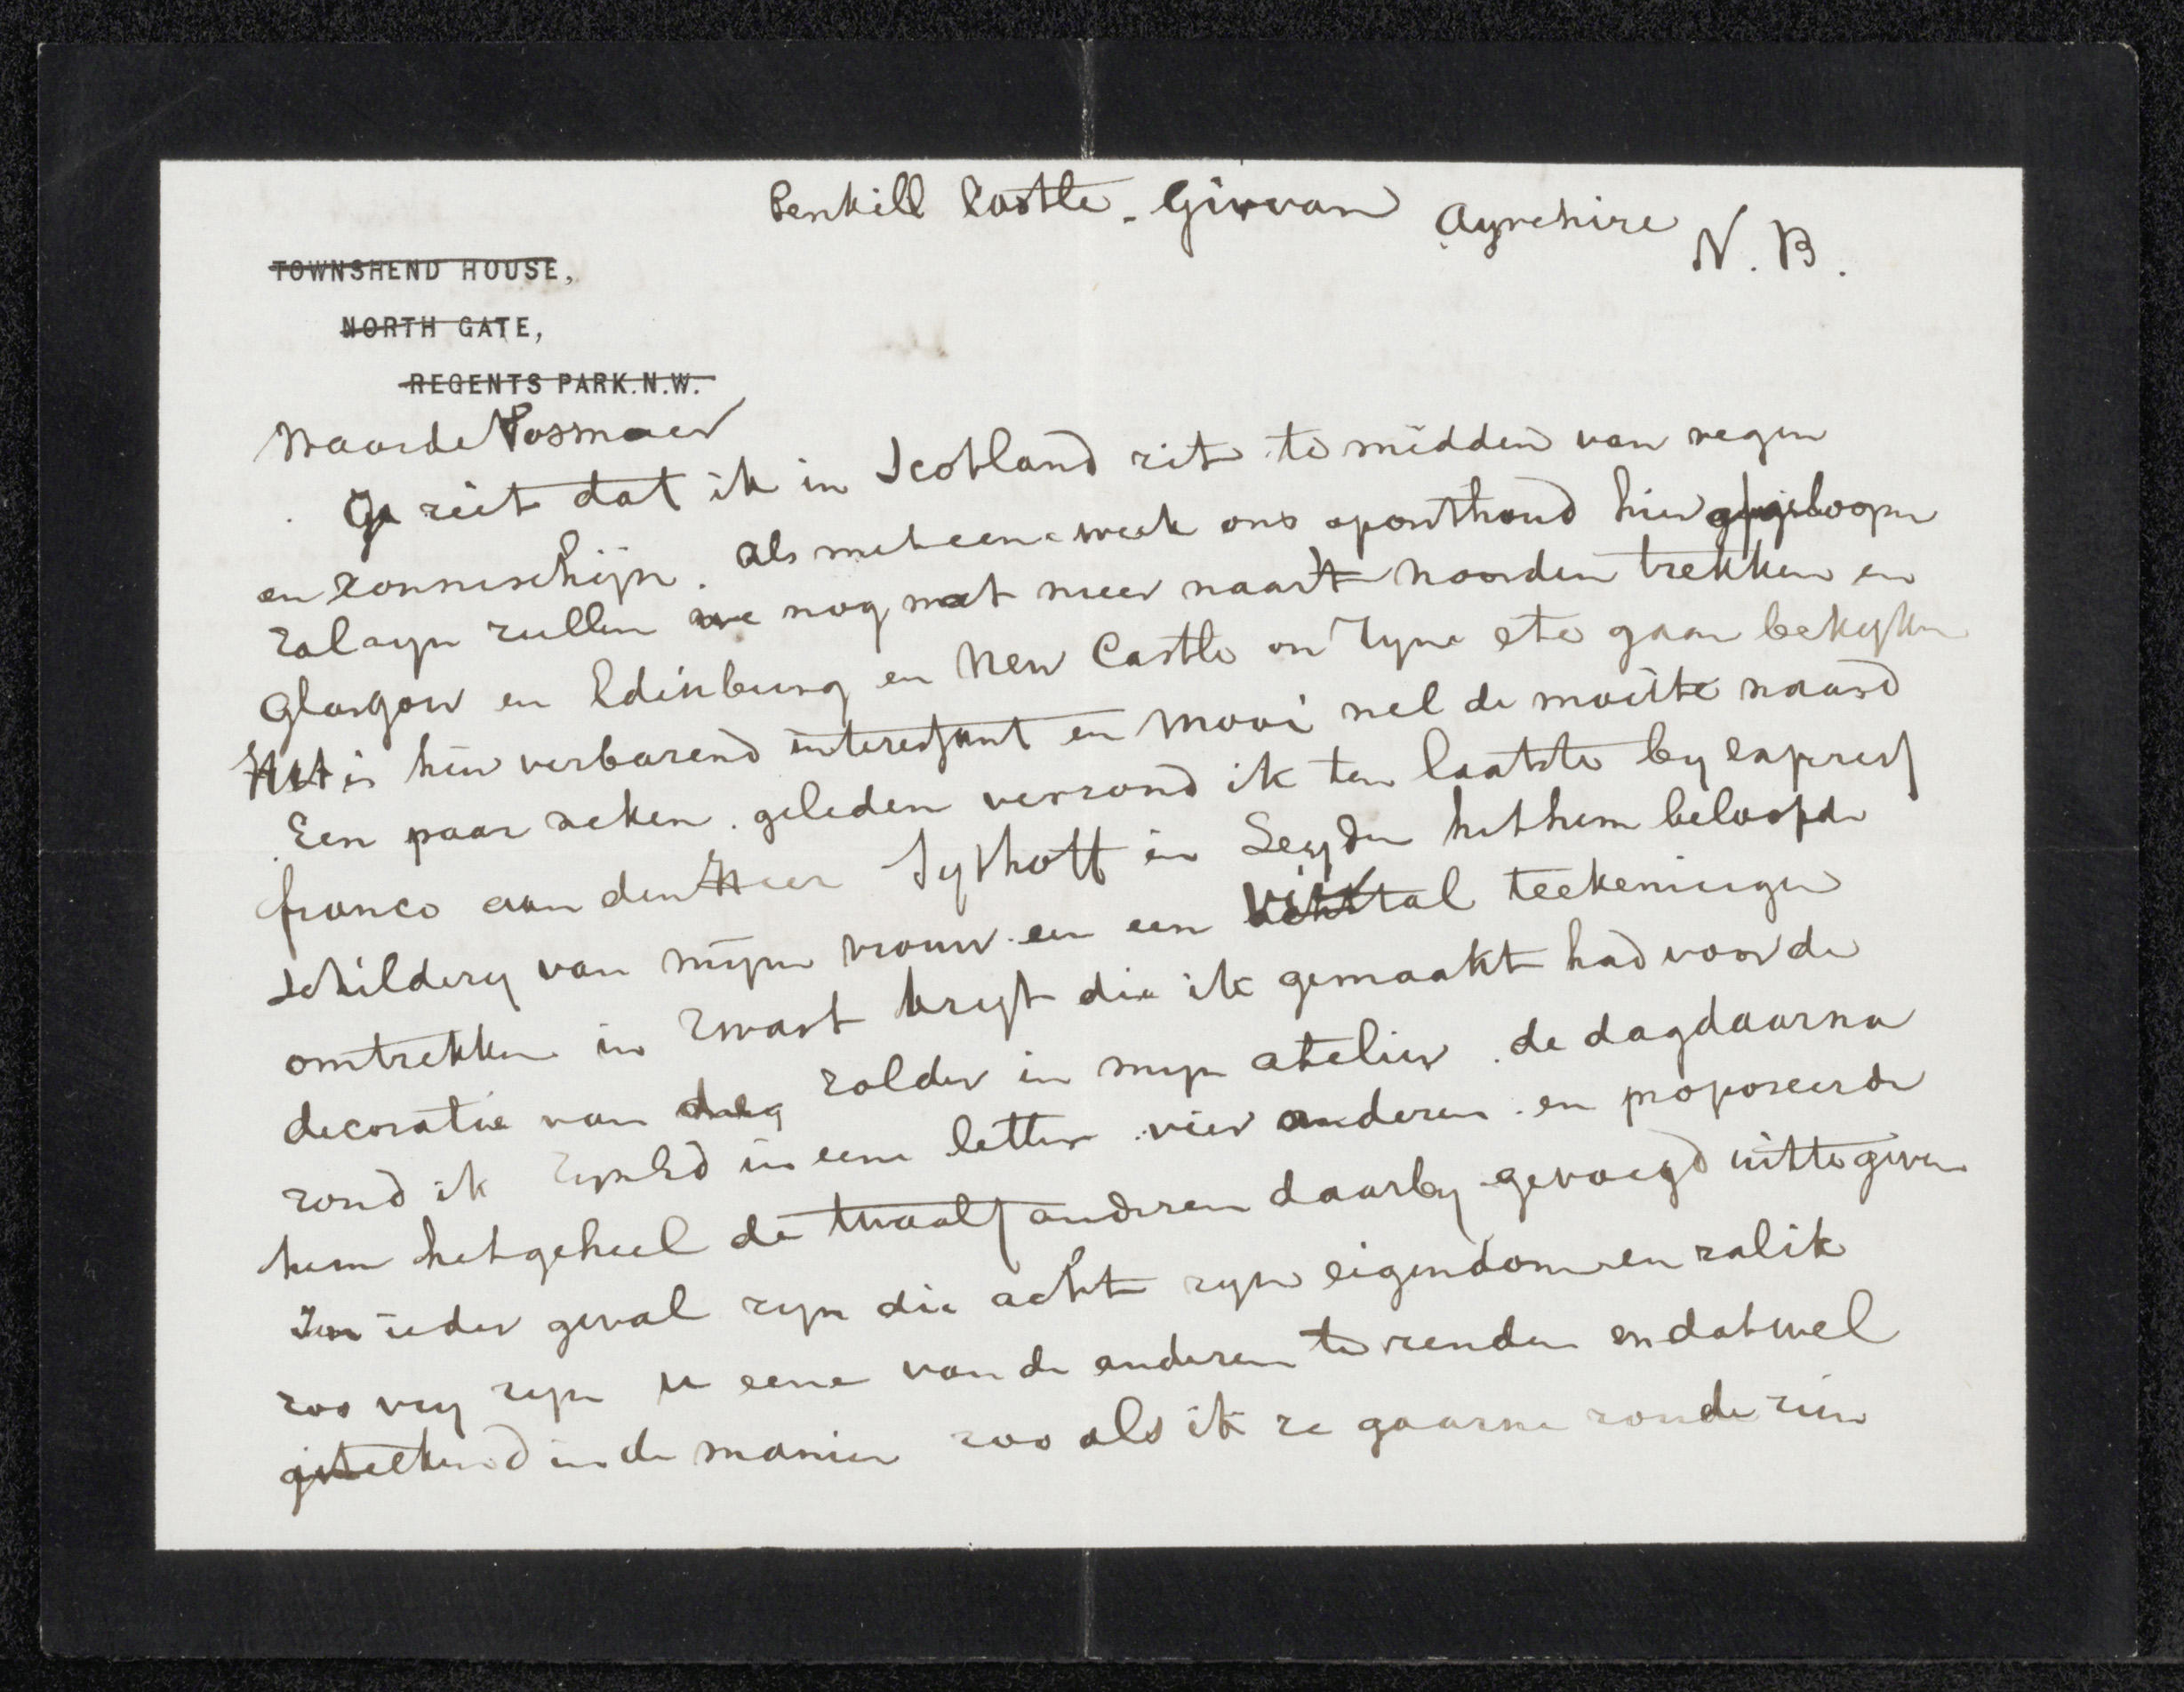 Penkill Castle - Girvan Ayrshire N.B.
TOWNSHEND HOUSE,
NORTH GATE,
REGENTS PARK.N.W.
Waarde Vosmaer
Ge ziet dat ik in Scotland zit te midden van regen
en zonneschijn. als met eene week ons oponthoud hier afgeloopen
zal zyn zullen we nog wat meer naar't noorden trekken en
Glasgow en Edinburg en New Castle on Tyne etc gaan bekyken
Het is hier verbazend interessant en mooi wel de moeite waard
Een paar weken geleden verzond ik ten laatste by express
franco aan den Heer Sythoff in Leyden het hem beloofde
schildery van mijne vrouw en een viertal teekeningen
omtrekken in zwart kryt die ik gemaakt had voor de
decoratie van de zolder in myn atelier. de dag daarna
zond ik ZynEd in eene letter vier anderen en proposeerde
hem het geheel de twaalf anderen daarby gevoegd uittegeven
In ieder geval zyn die acht zyn eigendom en zal ik
zoo vry zyn u eene van de anderen te zenden en dat wel
geteekend in de manier zoo als ik ze gaarne zoude zien